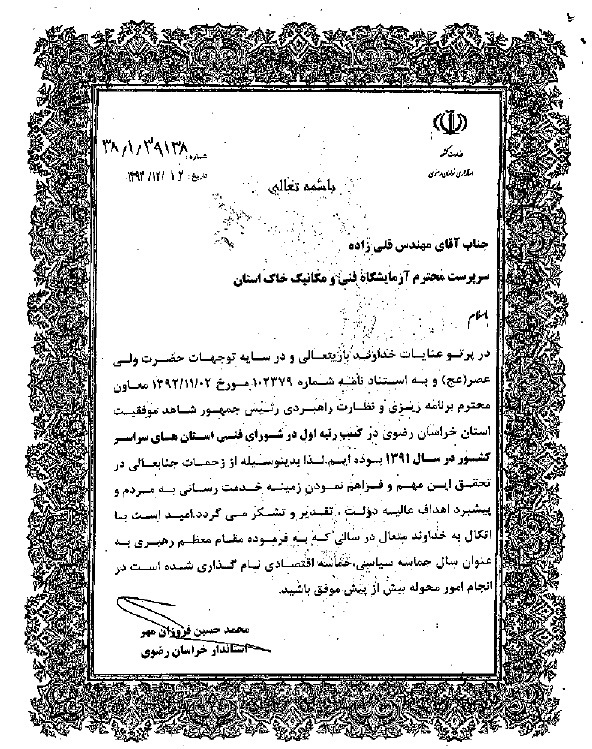 وزارت کشور
استانداری خراسان رضوی
شماره: ۳۸/۱/۳۹۱۳۸
تاریخ: ۱۳۹۲/۱۲/۱۲
باسمه تعالی
جناب آقای مهندس قلی زاده
سرپرست محترم آزمایشگاه فنی و مکانیک خاک استان
باسلام
در پرتو عنایات خداوند باریتعالی و در سایه توجهات حضرت ولی
عصر(عج) و به استناد نامه شماره ۱۰۲۳۷۹ مورخ ۱۳۹۲/۱۱/۰۲ معاون
محترم برنامه ریزی و نظارت راهبردی رئیس جمهور شاهد موفقیت
استان خراسان رضوی در کسب رتبه اول در شورای فنی استان های سراسر
کشور در سال ۱۳۹۱ بوده ایم.لذا بدینوسیله از زحمات جنابعالی در
تحقق این مهم و فراهم نمودن زمینه خدمت رسانی به مردم و
پیشبرد اهداف عالیه دولت ، تقدیر و تشکر می گردد.امید است با
اتکال به خداوند متعال در سالی که به فرموده مقام معظم رهبری به
عنوان سال حماسه سیاسی،حماسه اقتصادی نام گذاری شده است در
انجام امور محوله بیش از پیش موفق باشید.
محمد حسین فروزان مهر
استاندار خراسان رضوی